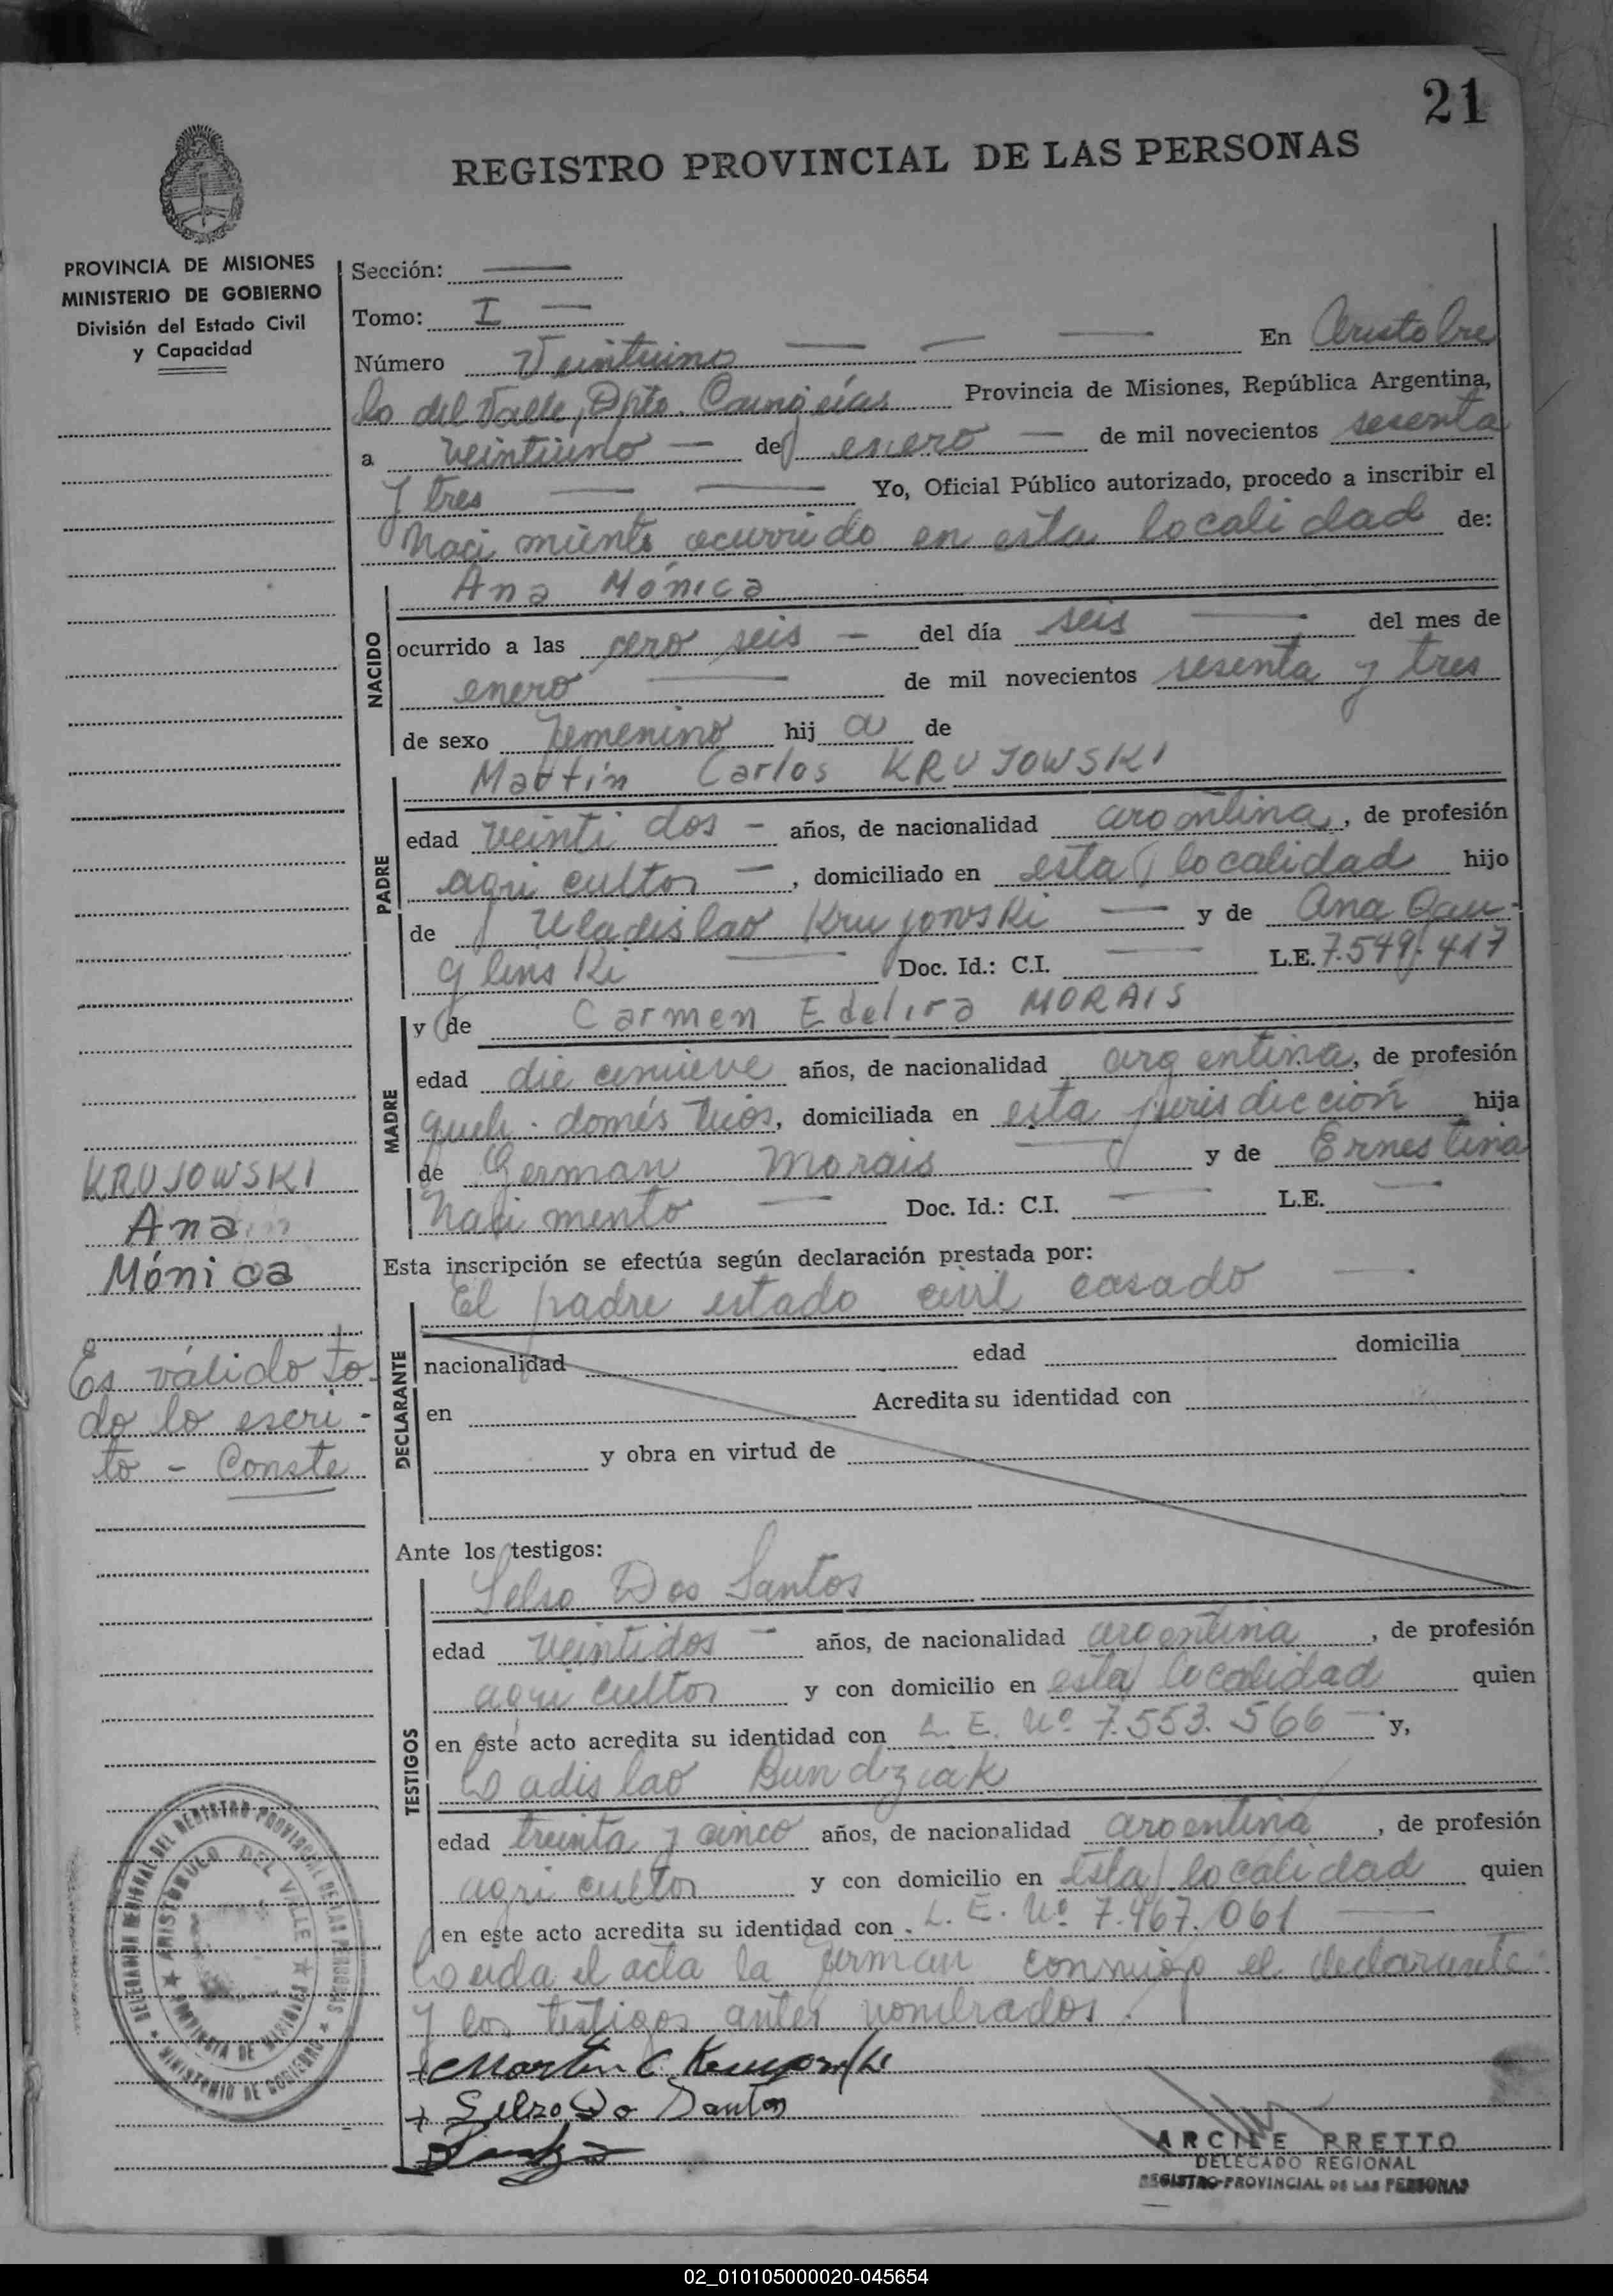 21
REGISTRO PROVINCIAL DE LAS PERSONAS
PROVINCIA DE MISIONES
MINISTERIO DE GOBIERNO
División del Estado Civil
y Capacidad
Sección:
Tomo: I
Número Veintiuno En Aristobu
lo del Valle, Dpto. Cainguás Provincia de Misiones, República Argentina,
a veintiuno de enero de mil novecientos sesenta
y tres Yo, Oficial Público autorizado, procedo a inscribir el
nacimiento ocurrido en esta localidad de:
NACIDO
Ana Mónica
ocurrido a las cero seis del día seis del mes de
enero de mil novecientos sesenta y tres
de sexo femenino hij a de
PADRE
Martín Carlos KRUJOWSKI
edad veinti dos años, de nacionalidad argentina, de profesión
agricultor, domiciliado en esta localidad hijo
de Uladislao Krujowski y de Ana
glinski Doc. Id.: C.I. L.E. 7.549.417
MADRE
y de Carmen Edelira MORAIS
edad diecinueve años, de nacionalidad argentina, de profesión
queh. domésticos, domiciliada en esta jurisdicción hija
de German Morais y de Ernestina
Nacimento Doc. Id.: C.I. L.E.
KRUJOWSKI
Ana
Mónica
Es válido to-
do lo escri-
to - Conste
Esta inscripción se efectúa según declaración prestada por:
DECLARANTE
El padre estado civil casado
nacionalidad edad domicilia
en Acredita su identidad con
y obra en virtud de
Ante los testigos:
TESTIGOS
Selso Dos Santos
edad veintidos años, de nacionalidad argentina, de profesión
agricultor y con domicilio en esta localidad quien
en este acto acredita su identidad con L. E. Nº 7.553.566 y,
Ladislao Bundziak
edad treinta y cinco años, de nacionalidad argentina, de profesión
agricultor y con domicilio en esta localidad quien
en este acto acredita su identidad con L. E. Nº 7.467.061
Leida el acta la firman conmigo el declarante
y los testigos antes nombrados.
Martin C. Krujowski
Selso Do Santos
DELEGACION REGIONAL DEL REGISTRO PROVINCIAL DE LAS PERSONAS
MINISTERIO DE GOBIERNO
ARISTOBULO DEL VALLE
PROVINCIA DE MISIONES
ARCILE PRETTO
DELEGADO REGIONAL
REGISTRO PROVINCIAL DE LAS PERSONAS
02_010105000020-045654